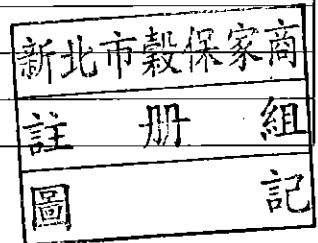 新北市穀保家商
註冊組
圖記